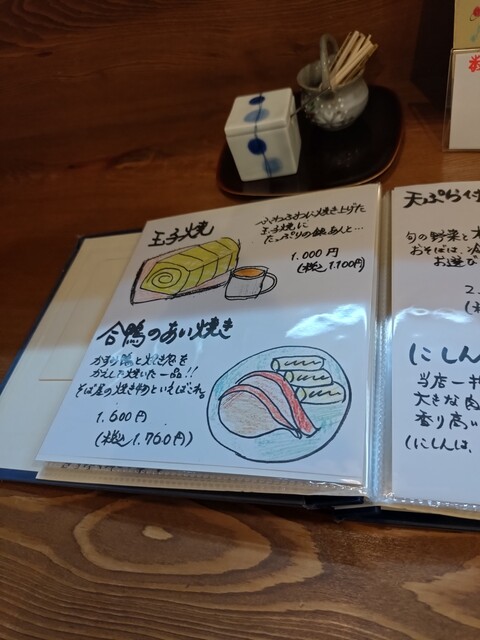 玉子焼
ふわふわに焼き上げた
玉子焼に
たっぷりの銀あんと…
1.000円
(税込1.100円)
合鴨のあい焼き
かえしで焼いた一品!!
そば屋の焼き物といえばこれ。
1.600円
(税込1.760円)
天ぷら付
旬の野菜と
おそばは、
お選び
にしん
当店一
大きな
香り高い
(にしんは、